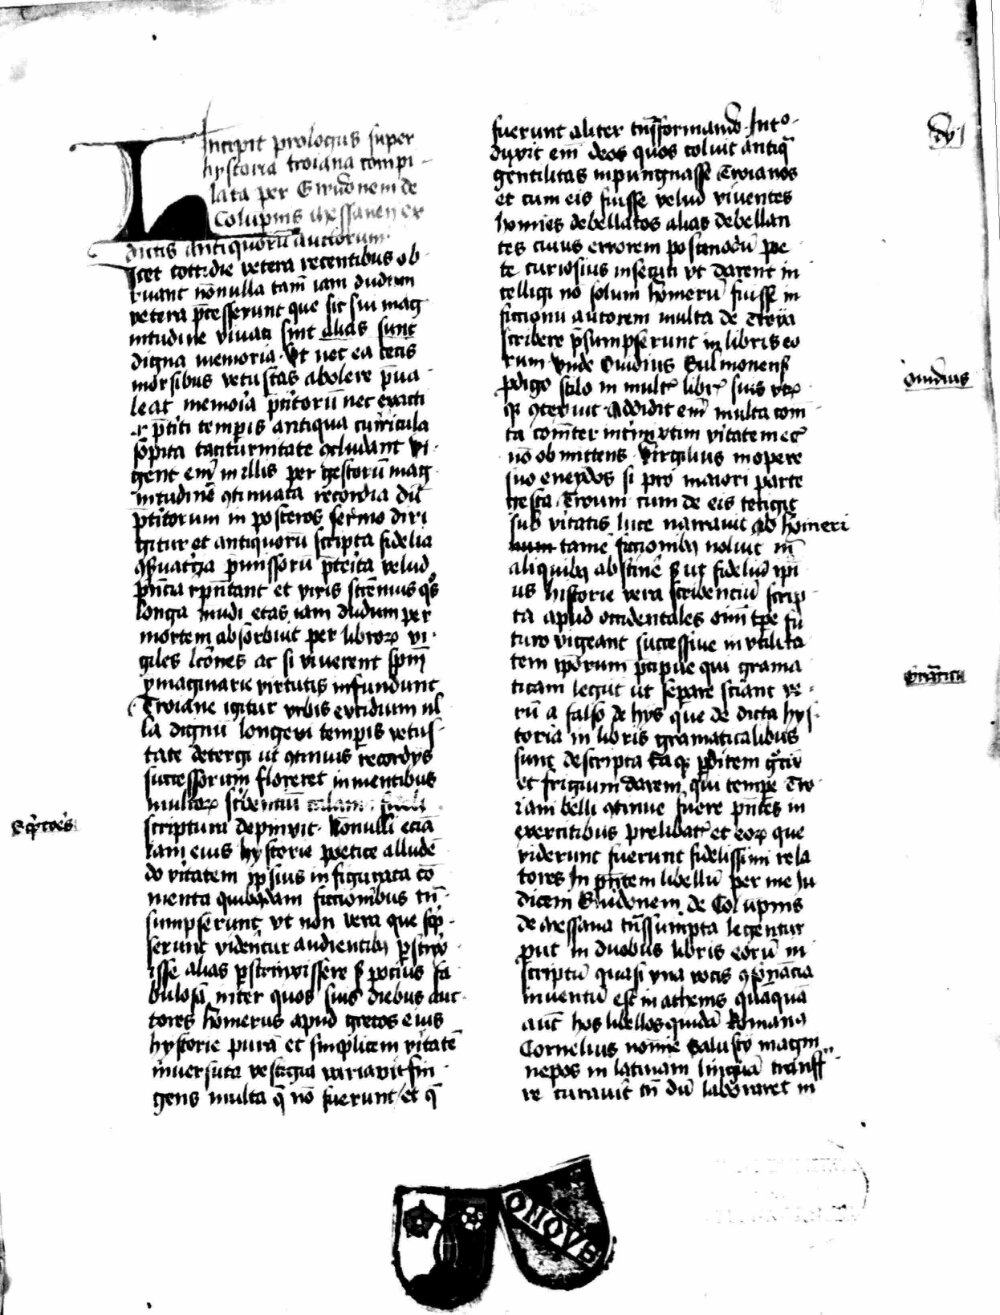 Incipit prologus super
hystoria troiana compi-
lata per Gwidonem de
Columpnis messanen ex
dictis antiquorū auctorum
Licet cottidie vetera recentibus ob-
ruant nōnulla tam̄ iam dudum
vetera p̄cesserunt que sic sui mag
nitudine vivaci sunt alias sunt
digna memoria. Ut nec ea cecis
morsibus vetustas abolere p̄ua
leat memoīa p̄titorū nec exacti
p̄titi temꝑis antiqua curricula
sopita taciturnitate ꝯcludant vi-
gent em̄ in illis per gestorū mag
nitudinē ꝯtinuata recordia dū
p̄titorum in posteros sermo diri
gitur et antiquorū scripta fidelia
ꝯseruatiua p̄missorū p̄terita velud
p̄ntia rep̄ntant et viris strenuis q̄s
longa mūdi etas iam dudum per
mortem absorbuit per libroꝝ vi-
giles lc̄ones ac si viverent sp̄m
ymaginarie virtutis infundunt
Troiane igitur vrbis excidium nl̄
la dignū longevi temꝑis vetus-
tate detergi ut ꝯtinuis recordijs
successorum floreret in mentibus
multoꝝ scribentiū
scriptura depinxit. Nonulli eciā
iam eius hystorie poetice allude
do v̄itatem ip̄sius in figurata cō
menta quibusdam fictionibus trā-
sumpserunt vt non vera que scp̄-
serunt viderētur audientibꝫ p̄scrip
sisse alias perstrinxissere s potius fa
bulosā inter quos suis diebus auc-
tores hōmerus apud grecos eius
hystorie purā et simplicem v̄itatē
in versuta vestigia variavit fin-
gens multa q̄ nō fuerunt et q̄
fuerunt aliter trāsformando. Into-
duxit em̄ deos quos coluit antiq̄
gentilitas inpungnasse Troianos
et cum eis fuisse velud viventes
homīes debellatos alias debellan
tes cuius errorem postmodū poe
te curiosius insecuti vt darent in
telligi nō solum hōmerū fuisse in
fictionū autorem multa de Troia
scribere p̄sumpserunt in libris eo
rum vnde Ovidius Sulmonens
ꝓdigo stilo in multis libris suis vtrūꝫ
ꝯtexuit Addidit em̄ multa com
ta com̄ter intimxtim v̄itatem ec̄
nō obmittens. Virgilius in opere
suo eneydos si pro maiori parte
gesta Troum cum de eis tetigit
sub v̄itatis luce narravit ab hōmeri
tamē fictionibꝫ noluit in
aliquibꝫ abstinē s ut fidelium ip̄i
us historie vera scribenciū scrip-
ta apud occidentales omī tp̄e fu
turo vigeant successive in vtilita
tem ip̄orum p̄cipue qui grama
ticam legūt ut sēpare sciant ve-
rū a falso de hys que de dicta hys-
toria in libris gramaticalibus
sunt descripta Ea q̄ ꝑ ditem grecū
et frigium darem qui tempe Tro
iani belli ꝯtinue fuere p̄ntes in
exercitibus prelibatis et eoꝝ que
viderunt fuerunt fidelissimi rela
tores In p̄ntem libellū per me Ju
dicem Gwidonem de Columpnis
de messana trāssumpta legentur
put in duobus libris eorū in
scriptū quasi vna vocis ꝯsonācia
inventū est in athenis quāquā
autē hos libellos quidā Romanꝰ
Cornelius nomīe Salusto magni
nepos in latinam linguā transff
re curauit tn̄ dū laboraret in
ovidius
SVONO